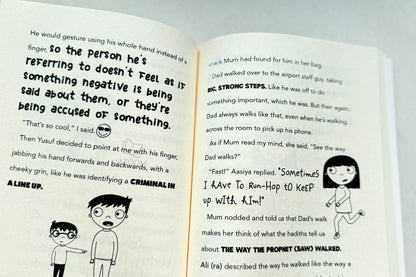 He would gesture using his whole hand instead of a
finger, so the person he's
referring to doesn't feel as if
something negative is being
said about them, or they're
being accused of something.
"That's so cool," I said.
Then Yusuf decided to point at me with his finger,
jabbing his hand forwards and backwards, with a
cheeky grin, like he was identifying a CRIMINAL IN
A LINE UP.
snack Mum had found for him in her bag.
Dad walked over to the airport staff guy, taking
BIG, STRONG STEPS. Like he was off to do
something important, which he was. But then again,
Dad always walks like that, even when he's walking
across the room to pick up his phone.
As if Mum read my mind, she said, "See the way
Dad walks?"
"Fast!" Aasiya replied. "Sometimes
I have to run-hop to keep
up with him!"
Mum nodded and told us that Dad's walk
makes her think of what the hadiths tell us
about THE WAY THE PROPHET (SAW) WALKED.
Ali (ra) described the way he walked like the way a